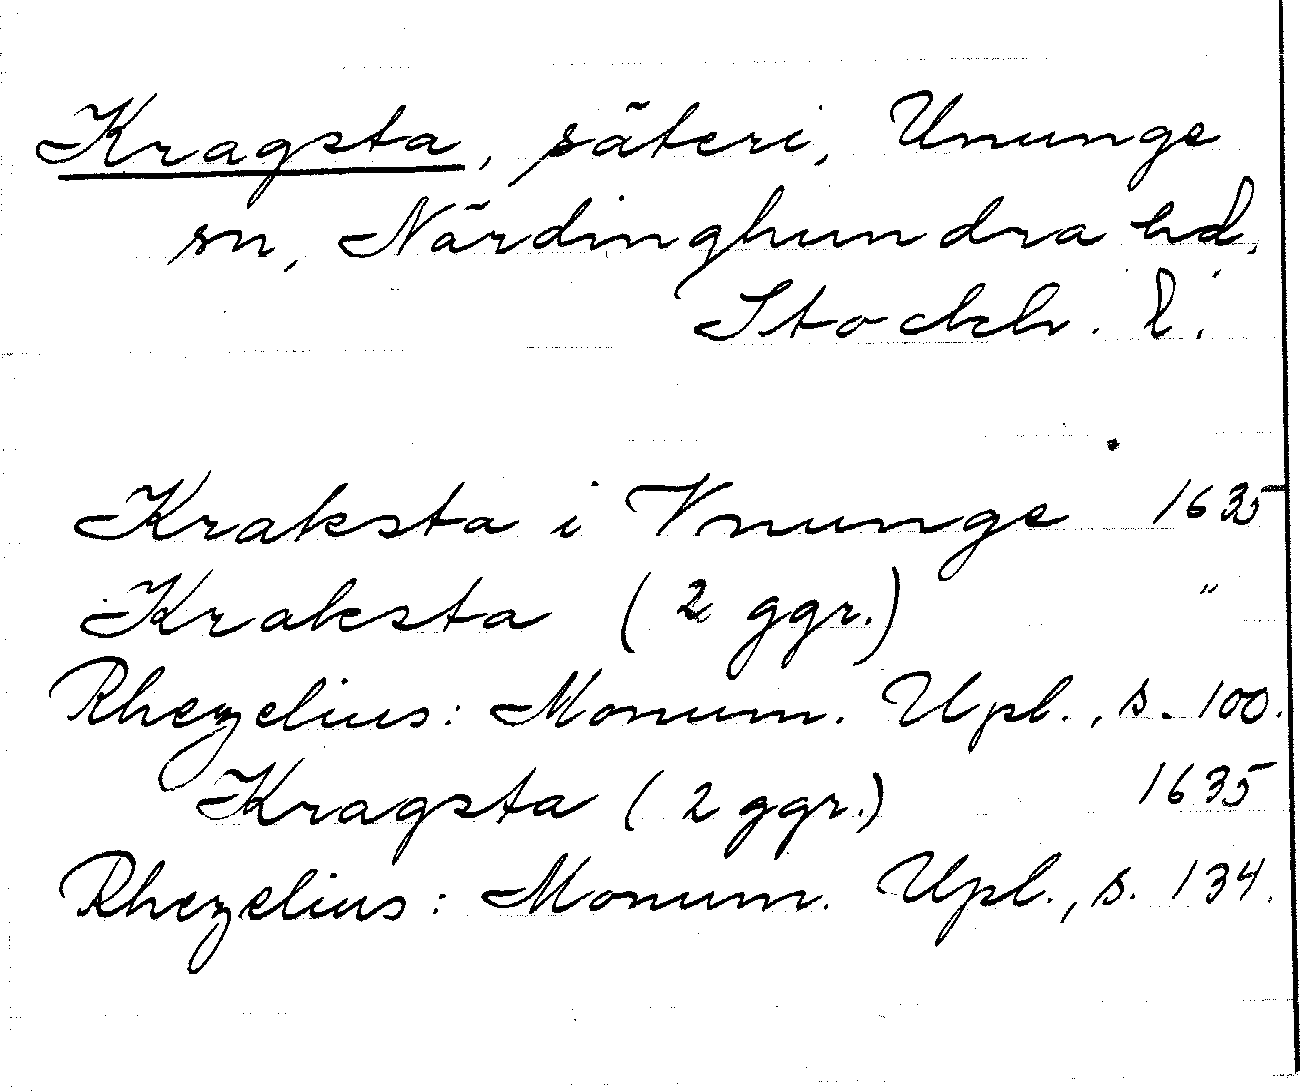 Kragsta, säteri, Ununge
sn, Närdinghundra hd,
Stockh. l.
Kraksta i Vnunge 1635
Kraksta (2 ggr.) "
Rhezelius: Monum. Upl., s. 100.
Kragsta (2 ggr.) 1635
Rhezelius: Monum. Upl., s. 134.